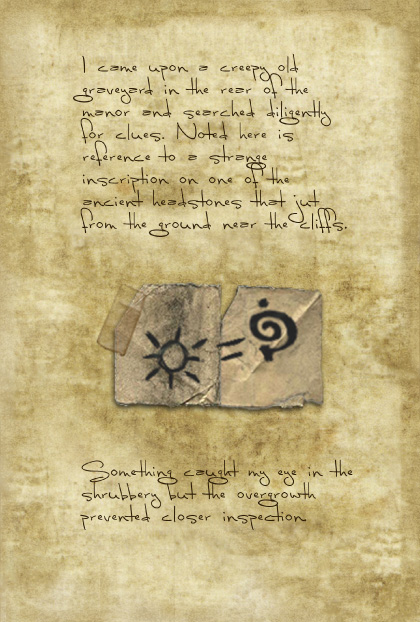 I came upon a creepy old
graveyard in the rear of the
manor and searched diligently
for clues. Noted here is
reference to a strange
inscription on one of the
ancient headstones that jut
from the ground near the cliffs.
=
Something caught my eye in the
shrubbery but the overgrowth
prevented closer inspection